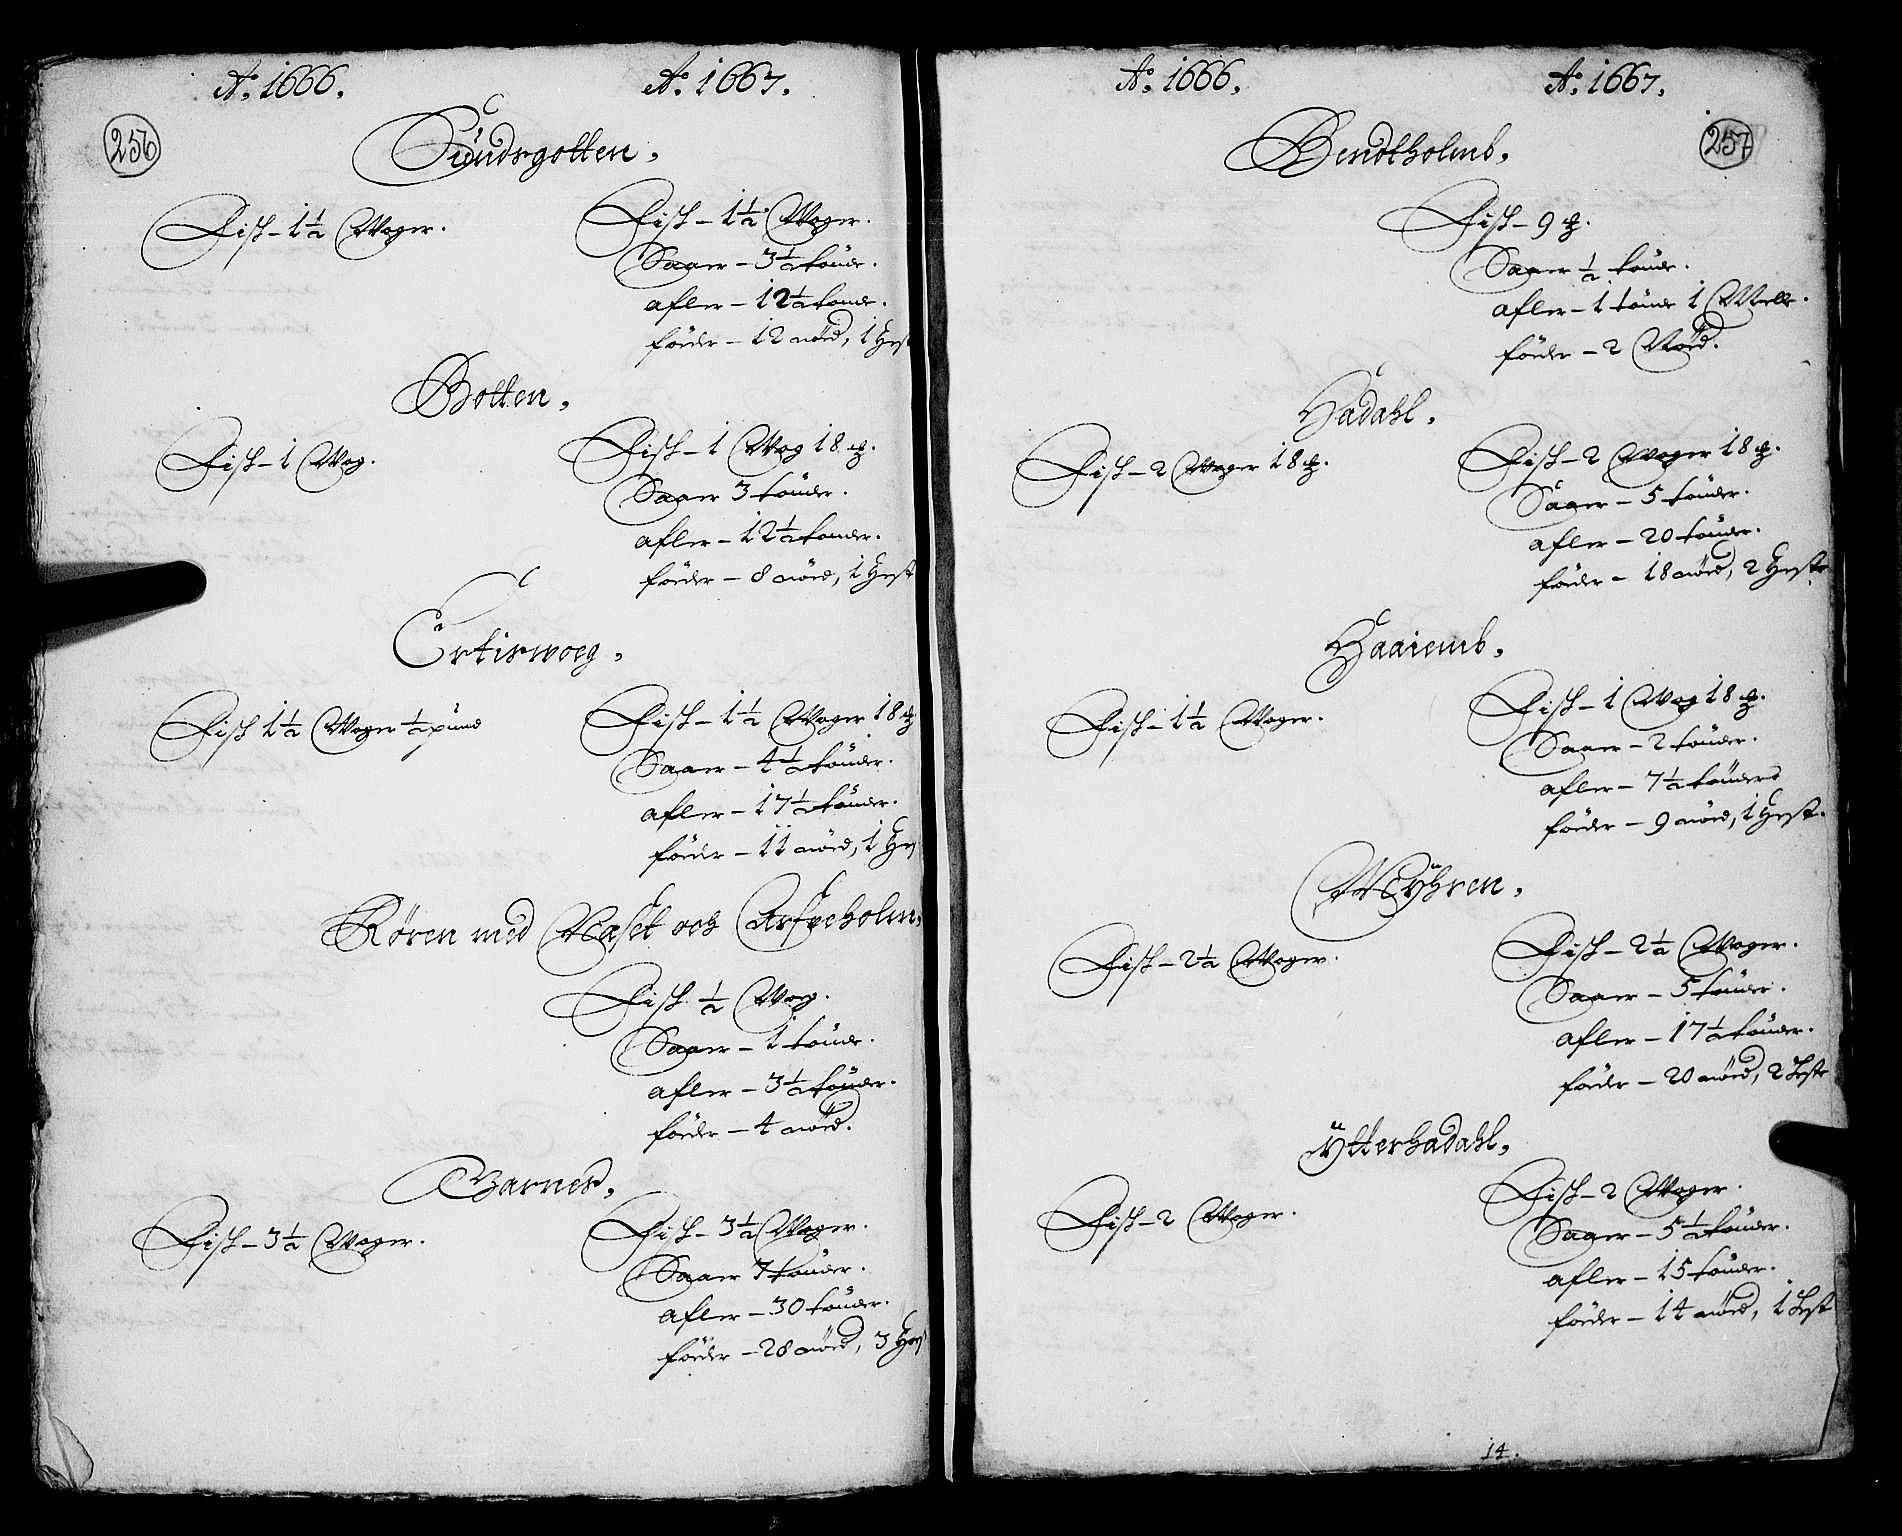 Aᵒ. 1666. Aᵒ. 1667.
256
Sündsgotten.
Fisk - 1½ Woger. Fisk - 1½ Woger.
Saaer - 3½ tönde.
afler - 12½ tönde.
föeder - 12 nöed, 1 Hest
Botten.
Fisk - 1 Wog. Fisk - 1 Wog 18 ℔.
Saaer 3 tönder.
afler - 12½ tonder.
föeder - 8 nöed, 1 Hest
Ertiswoeg.
Fisk 1½ Woger ½ pund Fisk - 1½ Woger 18 ℔
Saaer - 4½ tönder.
afler - 17½ tönder.
föeder - 11 nöed, 1 Hes
Røren med Næset och Arfveholm.
Fisk ½ Wog.
Saaer - 1 tönde.
afler - 3½ tönder.
föeder - 4 nöed.
Barnes.
Fisk - 3½ Woger. Fisk - 3½ Woger.
Saaer 7 tönder.
afler - 30 tönder.
föeder - 28 nöed, 3 Hes
Aᵒ. 1666. Aᵒ. 1667.
257
Bendtholmb.
Fisk - 9 ℔.
Saaer ½ tönde.
afler - 1 tönde 1 Welle.
föeder - 2 Nöed.
Hadahl.
Fisk - 2 Woger 18 ℔. Fisk - 2 Woger 18 ℔.
Saaer - 5 tönder.
afler - 20 tönder.
föeder - 18 nöed, 2 Heste
Haaiemb.
Fisk - 1½ Woger. Fisk - 1 Wog 18 ℔.
Saaer - 2 tönder.
afler - 7½ tönder
föeder - 9 nöed, 1 Hest.
Mÿhren.
Fisk - 2½ Woger. Fisk - 2½ Woger.
Saaer - 5 tönder.
afler - 17½ tönder.
föeder - 20 nöed, 2 Heste
Ÿtterhadahl.
Fisk - 2 Woger. Fisk - 2 Woger.
Saaer - 5½ tönder.
afler - 15 tönder.
föeder - 14 nöed, 1 Hest
14.